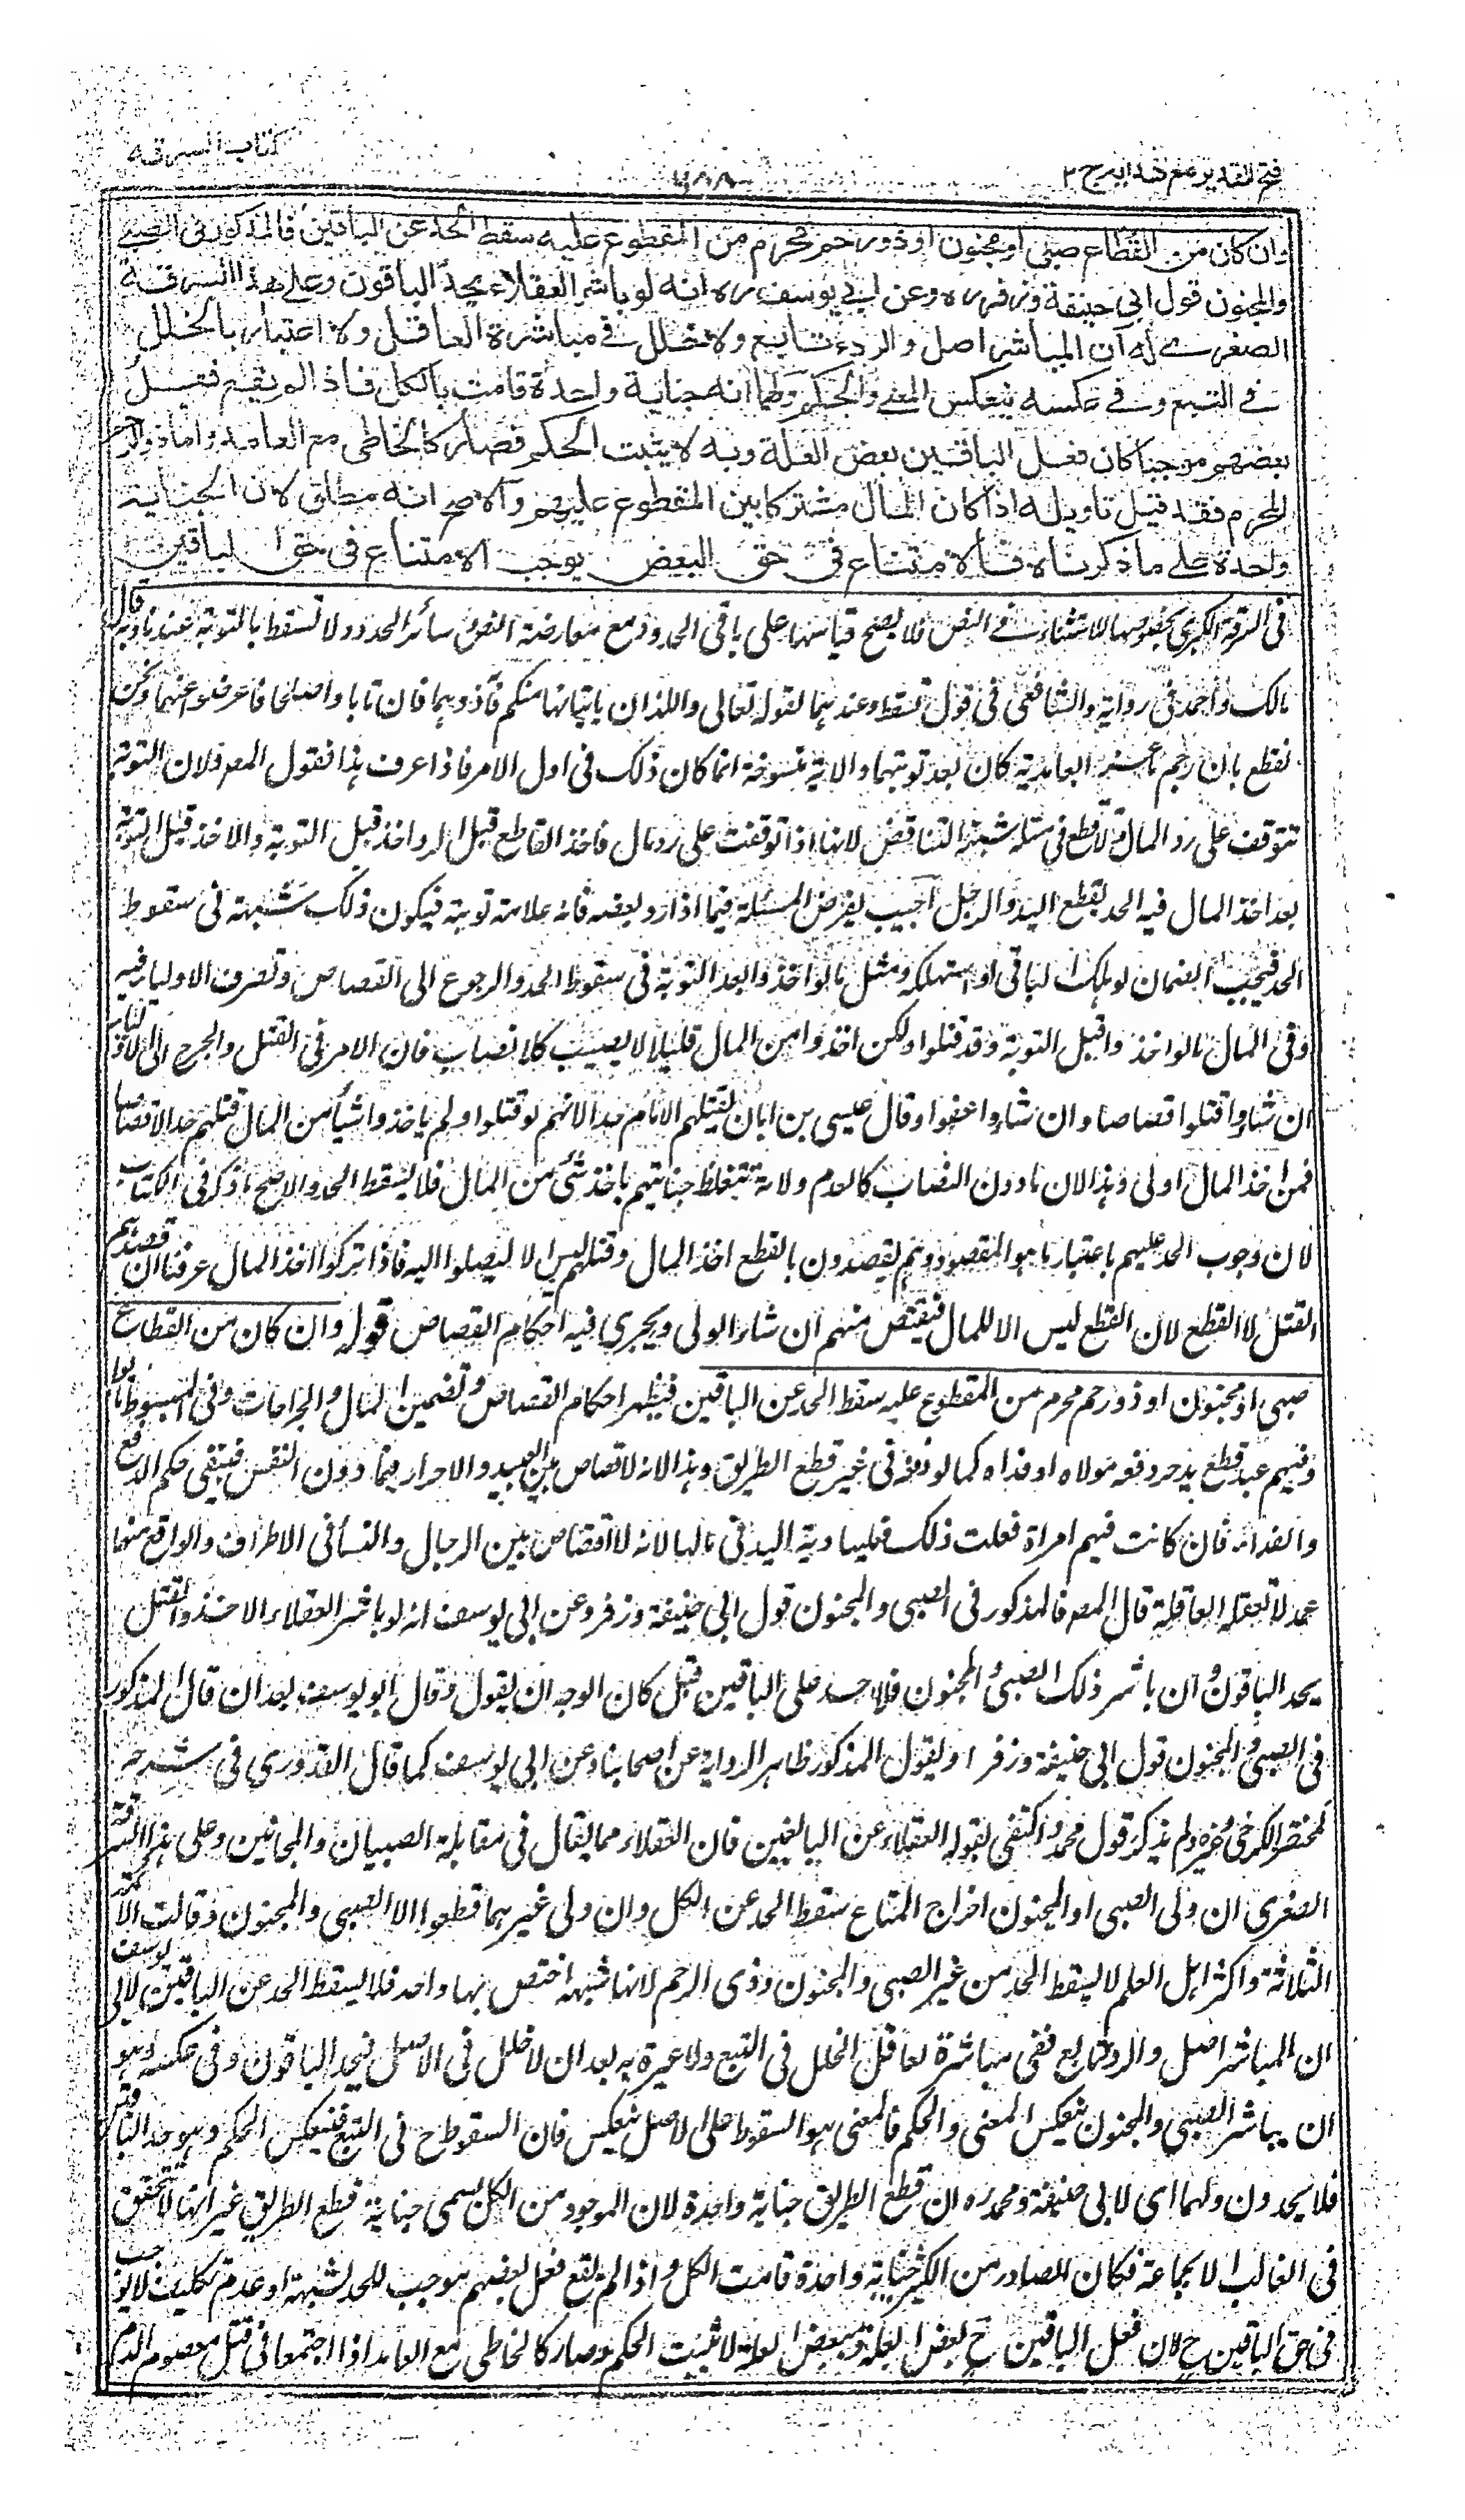 فتح القدير مع هدايه ج ٢
كتاب السرقه
وان كان من القطاع صبي او مجنون او ذو رحم محرم من المقطوع عليه سقط الحد عن الباقين فالمذكور في الصبي
والمجنون قول ابي حنيفة وزفر ره وعن ابي يوسف ره انه لو باشر العقلاء يحد الباقون وعلى هذا السرقة
الصغرى له ان المباشر اصل والردء تابع ولا خلل في مباشرة العاقل ولا اعتبار بالخلل
في التبع وفي عكسه ينعكس المعنى والحكم ولهما انه جناية واحدة قامت بالكل فاذا لم يقع فعل
بعضهم موجبا كان فعل الباقين بعض العلة وبه لا يثبت الحكم فصار كالخاطى مع العامد واما ذو الرحم
المحرم فقد قيل تاويله اذا كان المال مشتركا بين المقطوع عليهم والاصح انه مطلق لان الجناية
واحدة على ما ذكرناه فالامتناع في حق البعض يوجب الامتناع في حق الباقين
في السرقة الكبرى بخصوصها للاستثناء في النص فلا يصح قياسها على باقي الحدود مع معارضة النص سائر الحدود لا تسقط بالتوبة عندنا وبه قال
مالك واحمد في رواية والشافعي في قول تسقط وعندهما لقوله تعالى واللذان ياتيانها منكم فآذوهما فان تابا واصلحا فاعرضوا عنهما ونحن
نقطع بان رجم ماعز والغامدية كان بعد توبتهما والاية منسوخة انما كان ذلك في اول الامر فاذا عرف هذا فقول المصـ ولان التوبة
تتوقف على رد المال ولا قطع في مثله شبهة التناقض لانها اذا توقفت على رد المال فاخذ القاطع قبل الرد اخذ قبل التوبة والاخذ قبل التوبة
بعد اخذ المال فيه الحد بقطع اليد والرجل اجيب بفرض المسئلة فيما اذا رد بعضه فانه علامة توبة فيكون ذلك شبهة في سقوط
الحد فيجب الضمان لو هلك الباقي او استهلكه ومثل ما لو اخذوا بعد التوبة في سقوط الحد والرجوع الى القصاص وتصرف الاولياء فيه
وفي المال ما لو اخذوا قبل التوبة وقد قتلوا ولكن اخذوا من المال قليلا لا يصيب كلا نصاب فان الامر في القتل والجرح الى الاولياء
ان شاؤا قتلوا قصاصا وان شاؤا عفوا وقال عيسى بن ابان يقتلهم الامام حدا لانهم لو قتلوا ولم ياخذوا شيأ من المال قتلهم حدا لا قصاصا
فمن اخذ المال اولى وهذا لان ما دون النصاب كالعدم ولانه تتغلظ جنايتهم باخذ شئ من المال فلا يسقط الحد والاصح ما ذكر في الكتاب
لان وجوب الحد عليهم باعتبار ما هو المقصود وهم يقصدون بالقطع اخذ المال وقتلهم ليس الا ليصلوا اليه فاذا تركوا اخذ المال عرفنا ان قصدهم
القتل لا القطع لان القطع ليس الا للمال فيقتص منهم ان شاء الولي ويجري فيه احكام القصاص قوله وان كان من القطاع
صبي او مجنون او ذو رحم محرم من المقطوع عليه سقط الحد عن الباقين فيظهر احكام القصاص وتضمين المال والجراحات وفي المبسوط تابوا
وفيهم عبد قطع يد حر دفعه مولاه او فداه كما لو فعله في غير قطع الطريق وهذا لانه لا قصاص بين العبيد والاحرار فيما دون النفس فيبقى حكم الدفع
والفداء فان كانت فيهم امراة فعلت ذلك فعليها دية اليد في مالها لانه لا قصاص بين الرجال والنسأ في الاطراف والواقع منها
عمد لا تعقله العاقلة قال المصـ فالمذكور في الصبي والمجنون قول ابي حنيفة وزفر وعن ابي يوسف انه لو باشر العقلاء الاخذ والقتل
يحد الباقون وان باشر ذلك الصبي والمجنون فلا حد على الباقين قيل كان الوجه ان يقول وقال ابو يوسف بعد ان قال المذكور
في الصبي والمجنون قول ابي حنيفة وزفر او يقول المذكور ظاهر الرواية عن اصحابنا وعن ابي يوسف كما قال القدوري في شرحه
لمختصر الكرخي وغيره ولم يذكر قول محمد واكتفى بقوله العقلاء عن البالغين فان العقلاء مما يقال في مقابلة الصبيان والمجانين وعلى هذا السرقة
الصغرى ان ولى الصبي او المجنون اخراج المتاع سقط الحد عن الكل وان ولى غيرهما قطعوا الا الصبي والمجنون وقالت الائمة
الثلاثة واكثر اهل العلم لا يسقط الحد من غير الصبي والمجنون وذي الرحم لانها شبهة اختص بها واحد فلا يسقط الحد عن الباقين لابي يوسف
ان المباشر اصل والردء تابع ففي مباشرة العاقل الخلل في التبع ولا عبرة به بعد ان لا خلل في الاصل فيحد الباقون وفي عكسه وهو
ان يباشر الصبي والمجنون ينعكس المعنى والحكم فالمعنى هو السقوط على الاصل ينعكس فان السقوط ح في التبع فينعكس الحكم وهو حد الباقين
فلا يحدون ولهما اي لابي حنيفة ومحمد ره ان قطع الطريق جناية واحدة لان الموجود من الكل يسمى جناية قطع الطريق غير انها لا تتحقق
في الغالب الا بجماعة فكان الصادر من الكثير جناية واحدة قامت الكل واذا لم يقع فعل بعضهم موجب للحد لشبهة او عدم تكليف لا يوجب
في حق الباقين ح لان فعل الباقين ح بعض العلة وببعض العلة لا يثبت الحكم وصار كالخاطى مع العامد اذا اجتمعا في قتل معصوم الدم